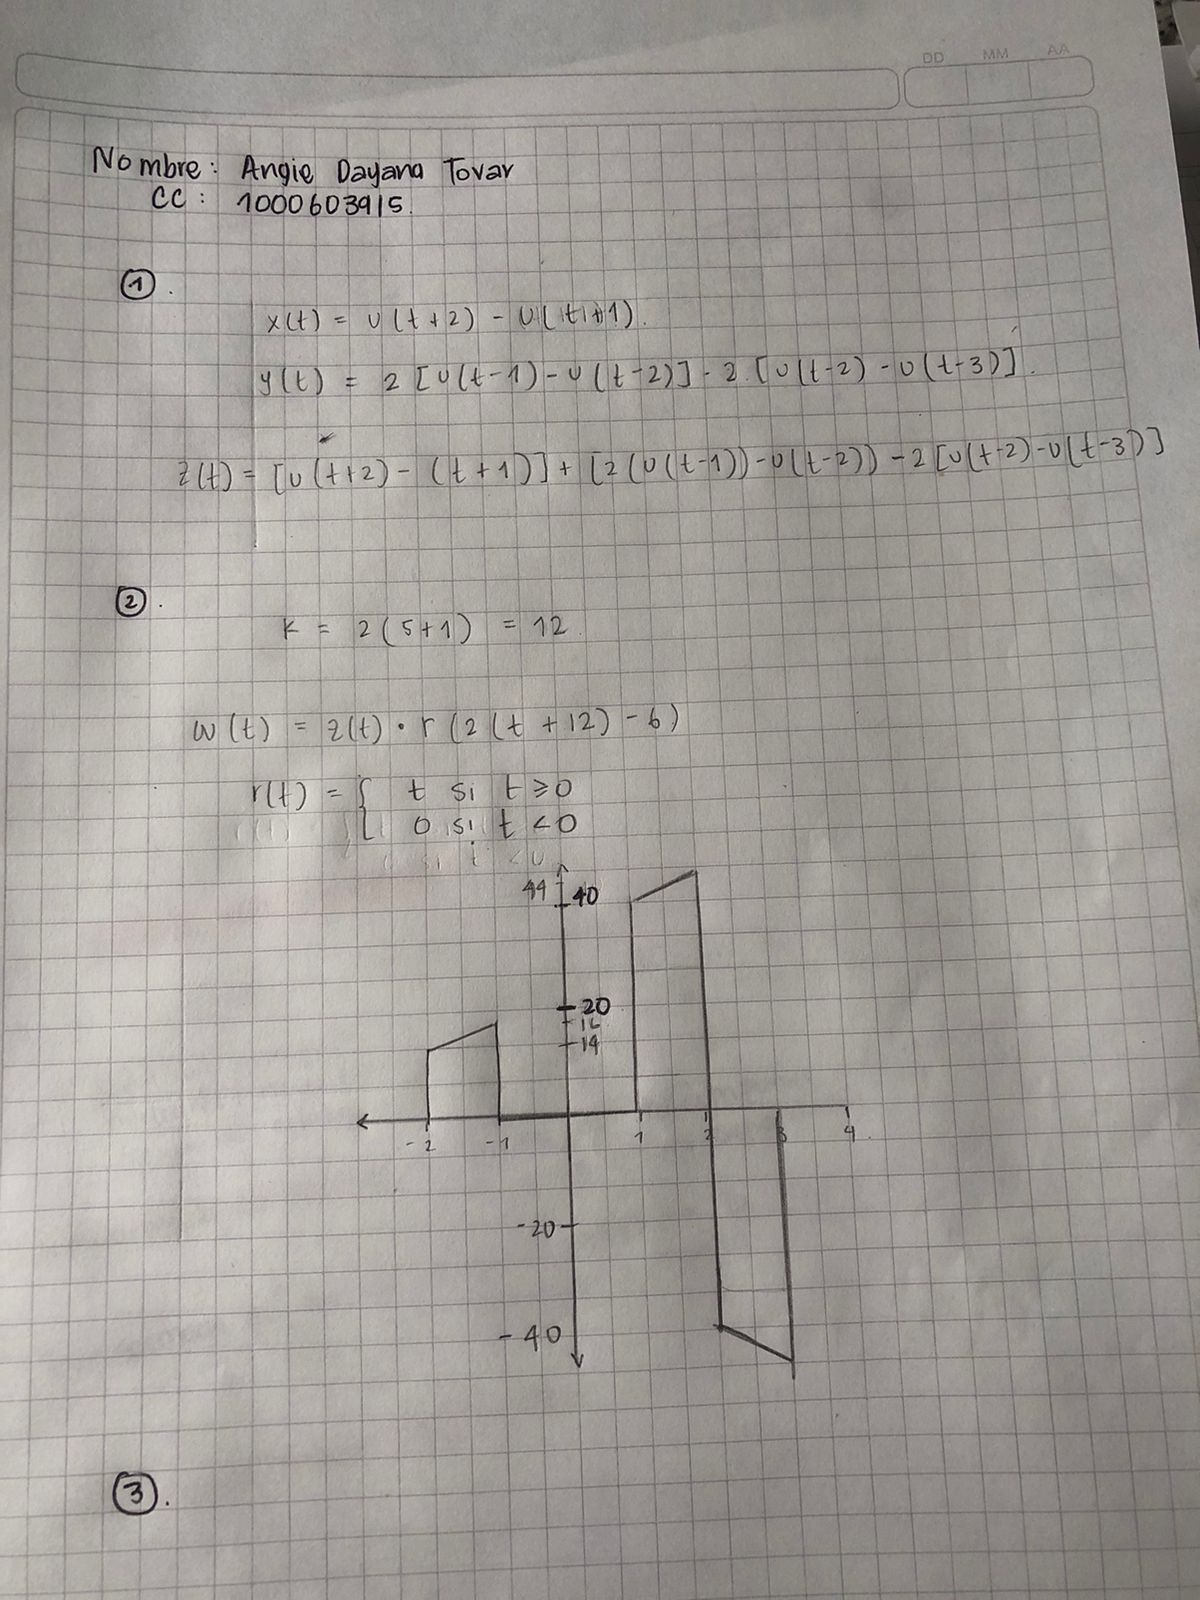 DD MM AA
Nombre: Angie Dayana Tovar
CC: 1000603915.
1.
x(t) = u(t+2) - u(t+1).
y(t) = 2[u(t-1)-u(t-2)] - 2.[u(t-2)-u(t-3)].
z(t) = [u(t+2) - (t+1)] + [2(u(t-1))-u(t-2)) - 2[u(t-2)-u(t-3)]
2.
k = 2(5+1) = 12
w(t) = z(t) · r(2(t+12) - 6)
r(t) = { t si t ≥ 0
0 si t < 0
44 40
20
14
-2 -1 1 2 3 4
-20
-40
3.